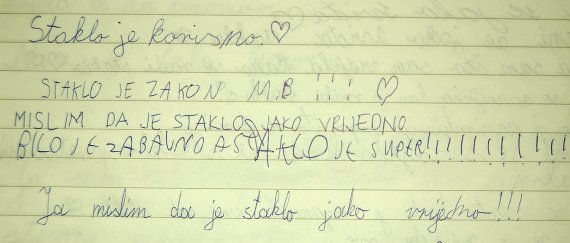 Staklo je korisno. ♡
STAKLO JE ZAKON M.B !!! ♡
MISLIM DA JE STAKLO JAKO VRIJEDNO
BILO JE ZABAVNO A STAKLO JE SUPER!!!!!!!!!!!!
Ja mislim da je staklo jako vrijedno!!!